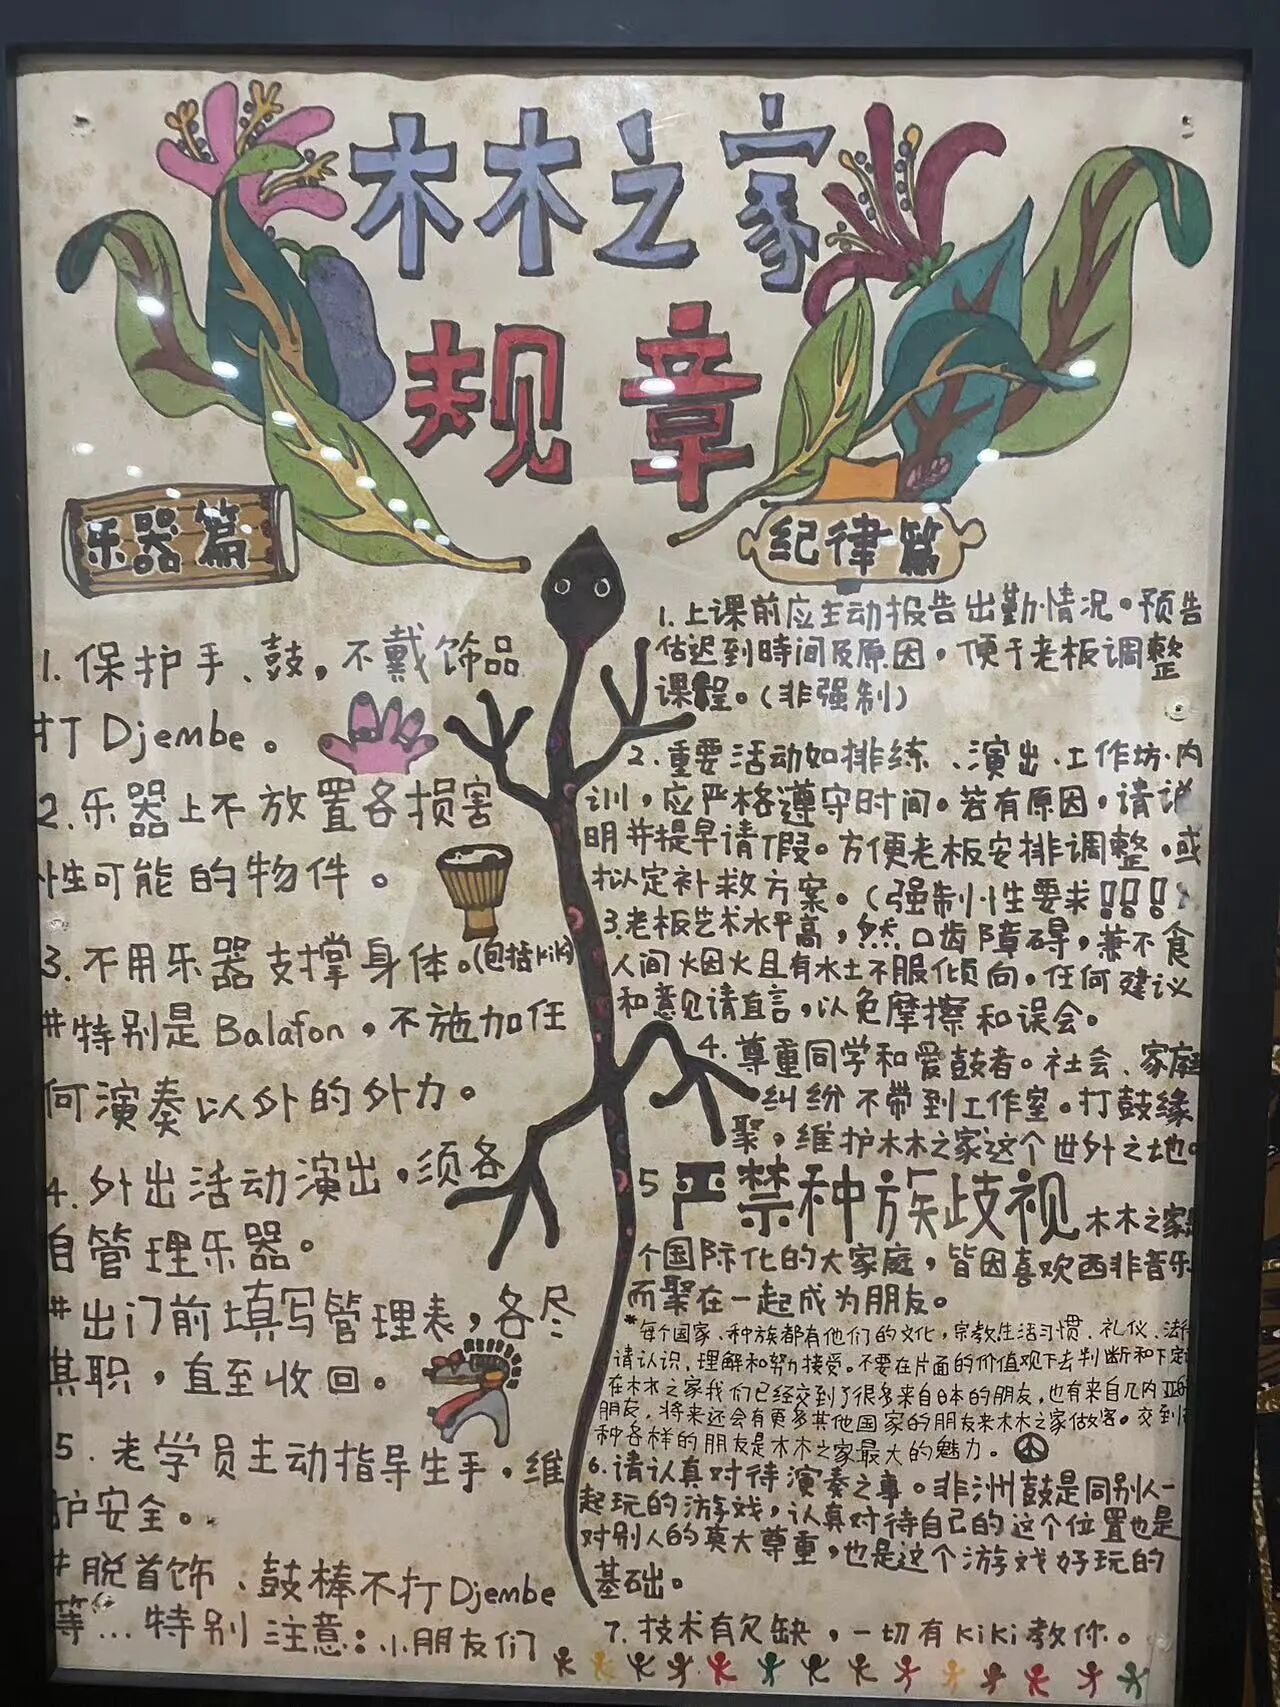 木木之家
规章
乐器篇
1. 保护手、鼓，不戴饰品
打 Djembe。
2. 乐器上不放置各损害
性可能的物件。
3. 不用乐器支撑身体。(包括kiki)
#特别是Balafon，不施加任
何演奏以外的外力。
4. 外出活动演出，须各
自管理乐器。
#出门前填写管理表，各尽
其职，直至收回。
5. 老学员主动指导生手，维
护安全。
#脱首饰、鼓棒不打Djembe
等…特别注意：小朋友们
纪律篇
1. 上课前应主动报告出勤情况。预告
估迟到時间及原因，便于老板调整
课程。(非强制)
2. 重要活动如排练、演出、工作坊、内
训，应严格遵守时间。若有原因，请说
明并提早请假。方便老板安排调整。或
拟定补救方案。(强制性要求!!!
3. 老板艺术水平高，然口齿障碍，兼不食
人间烟火且有水土不服倾向。任何建议
和意见请直言，以免摩擦和误会。
4. 尊重同学和爱鼓者。社会、家庭
纠纷不带到工作室。打鼓缘
聚，维护木木之家这个世外之地。
5 严禁种族歧视 木木之家
个国际化的大家庭，皆因喜欢西非音乐
而聚在一起成为朋友。
*每个国家、种族都有他们的文化，宗教生活习惯、礼仪、法
请认识，理解和努力接受。不要在片面的价值观下去判断和下定
在木木之家我们已经交到了很多来自日本的朋友，也有来自几内亚的
朋友，将来还会有更多其他国家的朋友来木木之家做客。交到
种各样的朋友是木木之家最大的魅力。
6. 请认真对待演奏之事。非洲鼓是同别人一
起玩的游戏，认真对待自己的这个位置也是
对别人的莫大尊重，也是这个游戏好玩的
基础。
7. 技术有欠缺，一切有KiKi教你。